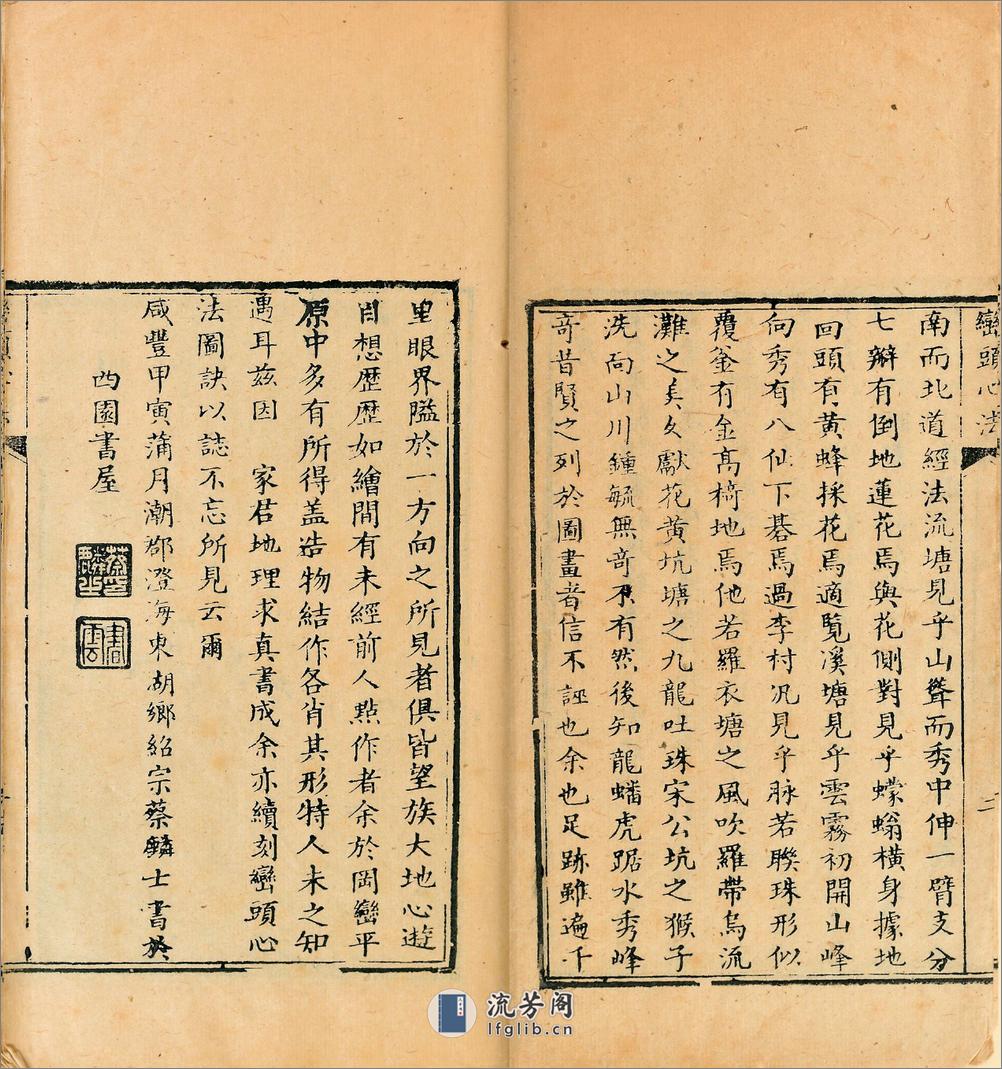 巒頭心法
二
南而北道經法流塘見乎山聳而秀中伸一臂支分
七辦有倒地蓮花焉與花側對見乎蠓螉橫身據地
回頭有黃蜂採花焉適覽溪塘見乎雲霧初開山峰
向秀有八仙下碁焉過李村況見乎脉若聯珠形似
覆釜有金高槁地焉他若羅衣塘之風吹羅帶烏流
灘之美女獻花黃坑塘之九龍吐珠宋公坑之猴子
洗向山川鍾毓無竒不有然後知龍蟠虎踞水秀峰
竒昔賢之列於圖畫者信不誣也余也足跡雖遍千
里眼界隘於一方向之所見者俱皆望族大地心遊
目想歷歷如繪間有未經前人點作者余於岡巒平
原中多有所得盖造物結作各肖其形特人未之知
遇耳兹因 家君地理求真書成余亦續刻巒頭心
法圖訣以誌不忘所見云爾
咸豐甲寅蒲月潮郡澄海東湖鄉紹宗蔡麟士書於
西園書屋
蔡印麟士
書雲
流芳阁
lfglib.cn